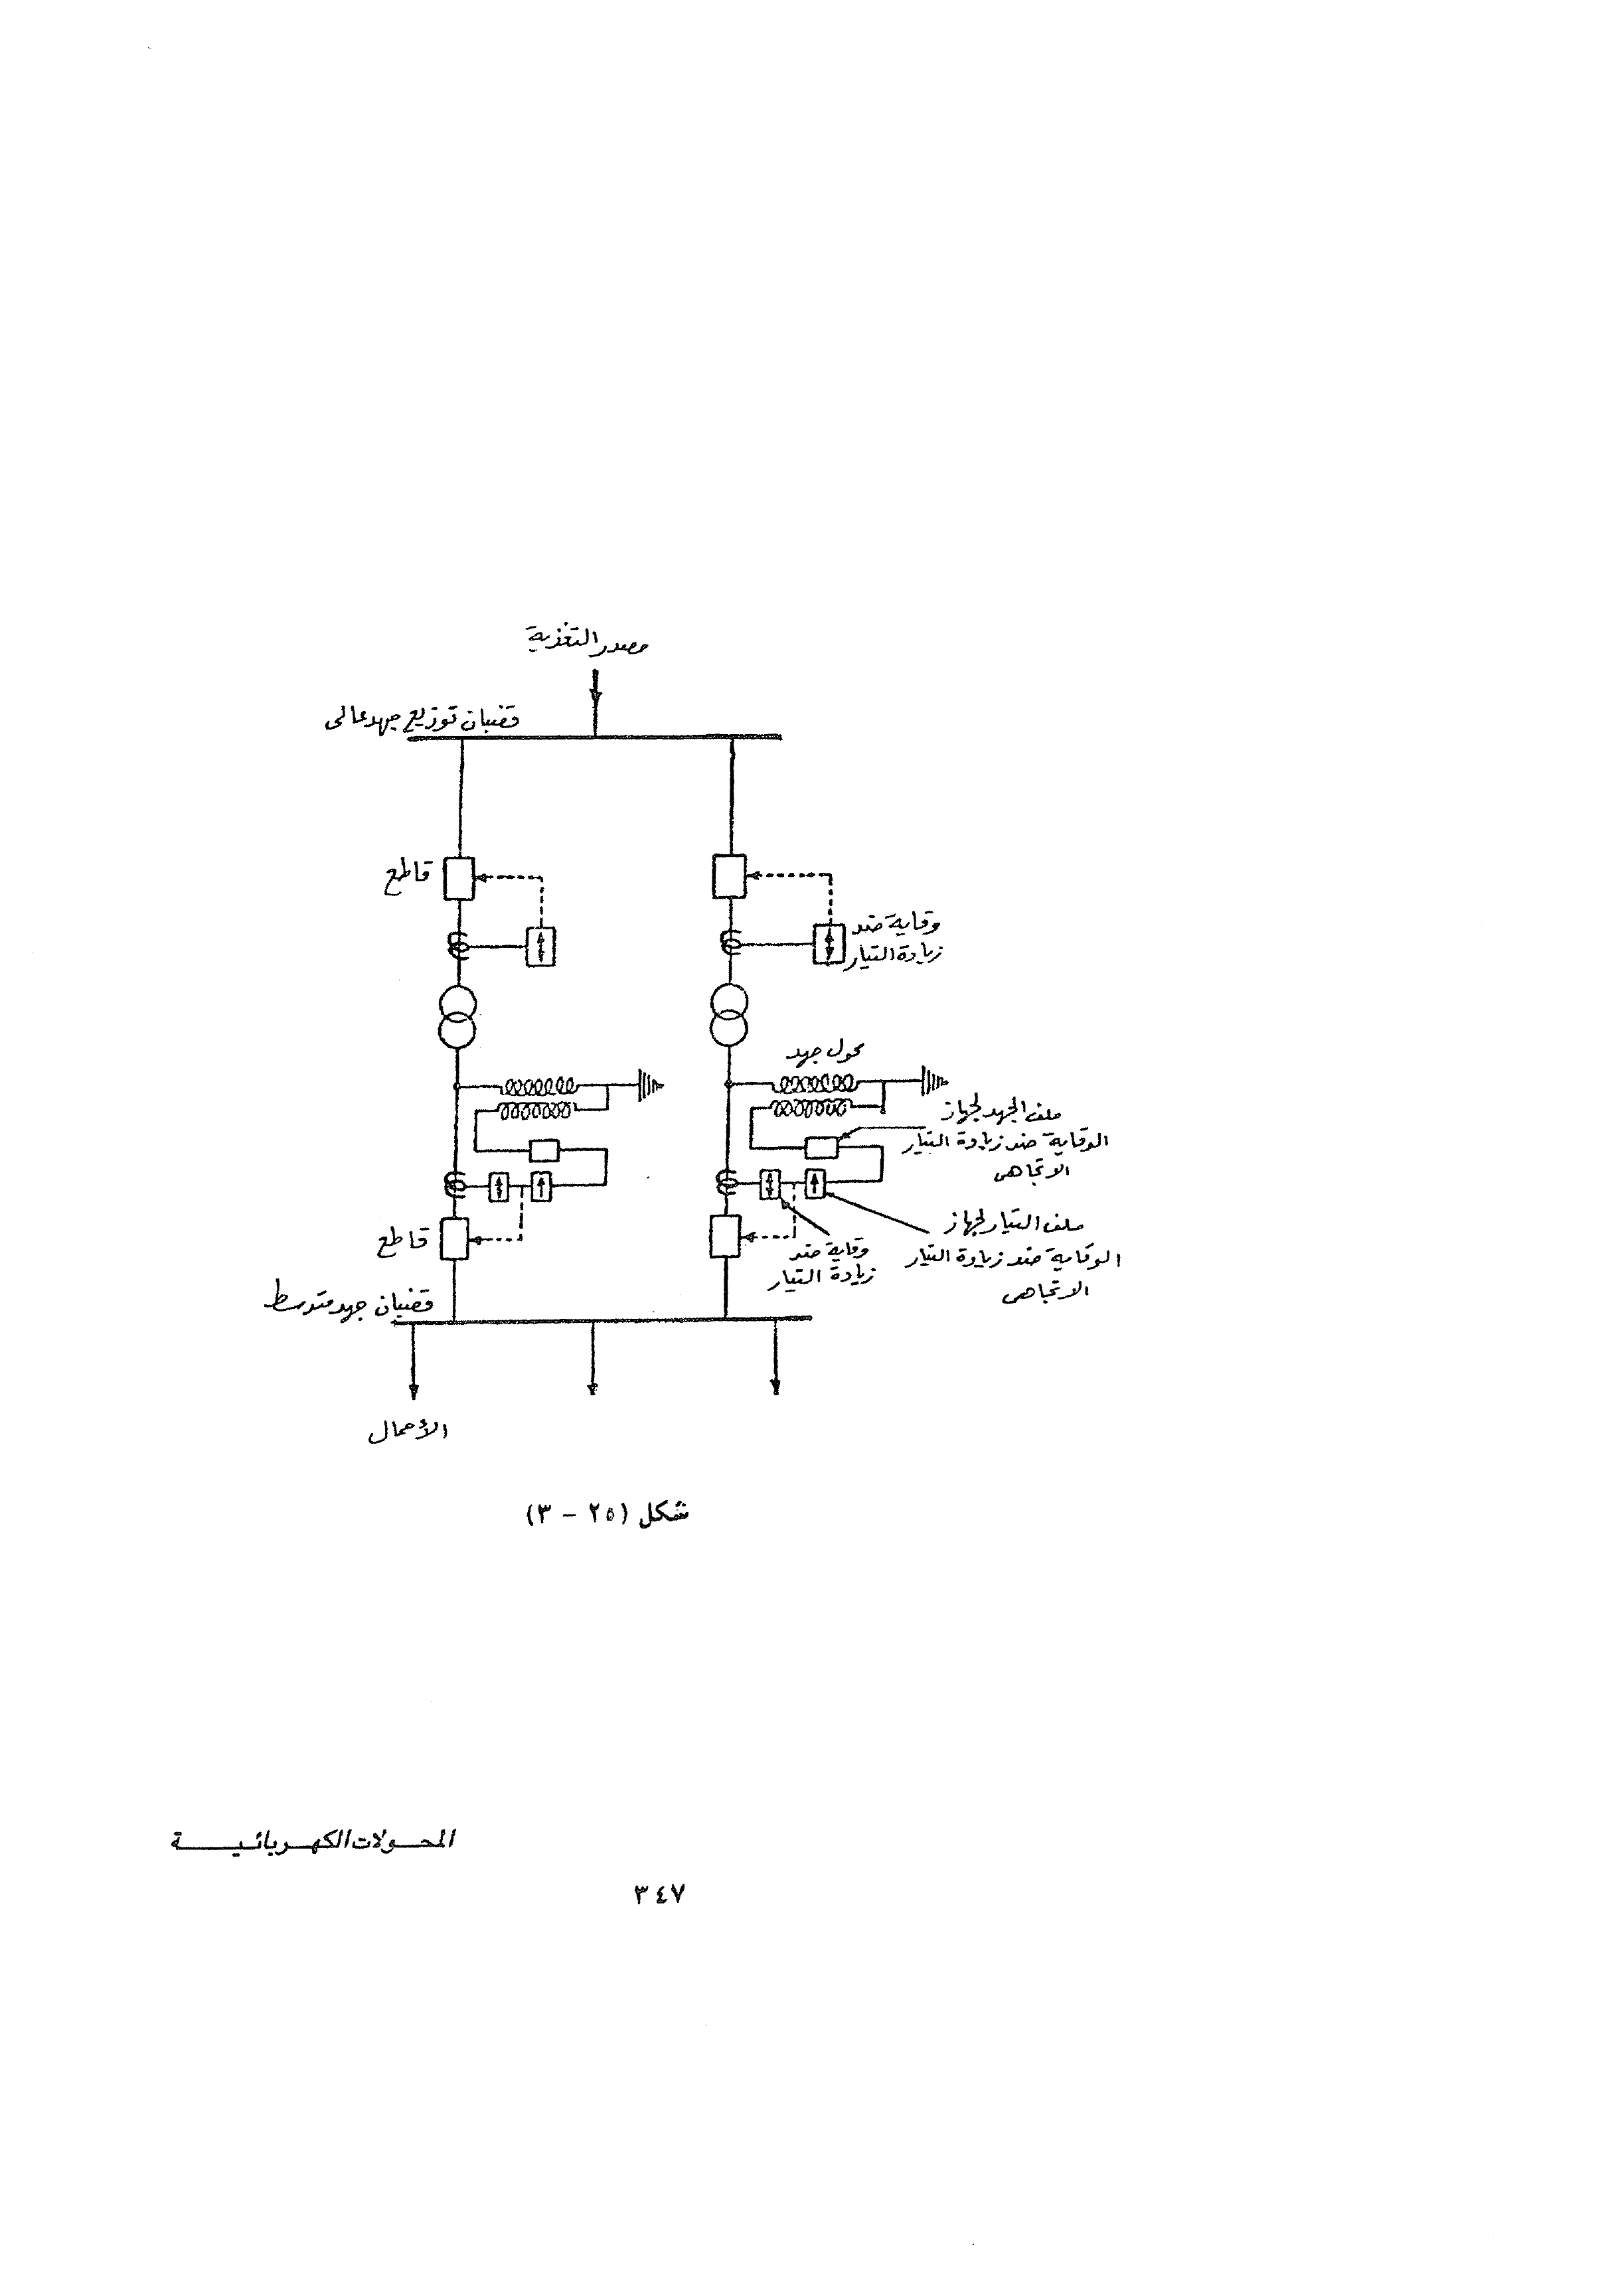 مصدر التغذية
قضبان توزيع جهد عالى
قاطع
وقاية ضد
زيادة التيار
محول جهد
ملف الجهد لجهاز
الوقاية ضد زيادة التيار
الاتجاهى
ملف التيار لجهاز
الوقاية ضد زيادة التيار
الاتجاهى
وقاية ضد
زيادة التيار
قاطع
قضبان جهد متوسط
الأحمال
شكل (٢٥ - ٣)
المحولات الكهربائية
٣٤٧